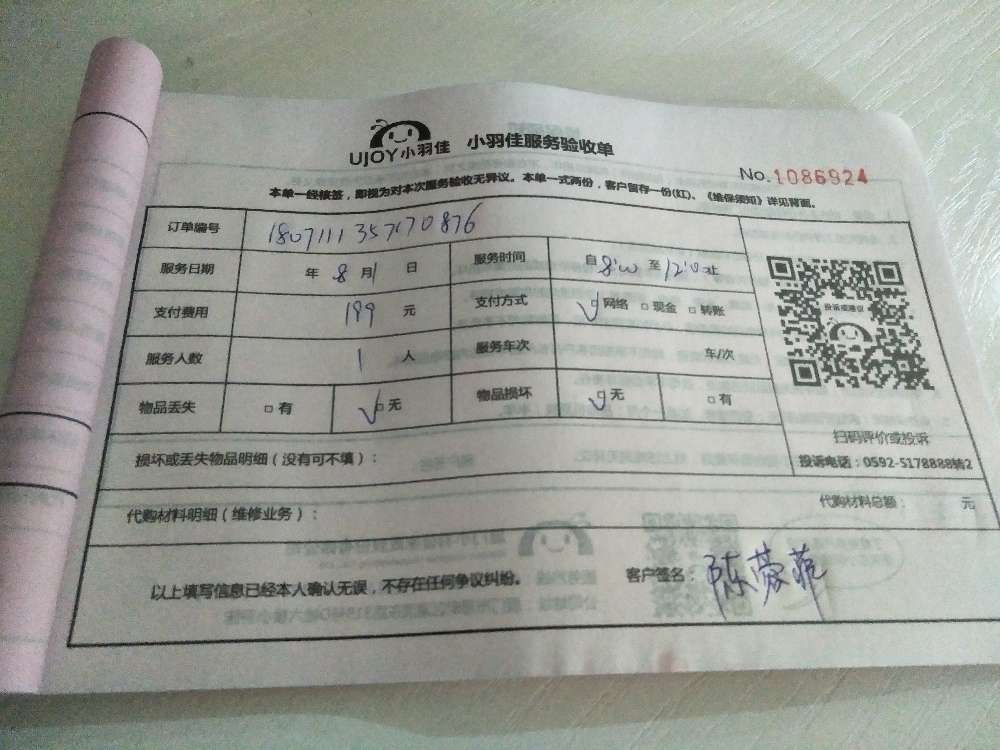 UJOY小羽佳 小羽佳服务验收单
No.1086924
本单一经核签，即视为对本次服务验收无异议。本单一式两份，客户留存一份(红)、《维保须知》详见背面。
订单编号 1807111357170876
服务日期 年 8 月 1 日 服务时间 自 8:00 至 12:00 止
支付费用 199 元 支付方式 √□网络 □现金 □转账
服务人数 1 人 服务车次 车/次
物品丢失 □有 √□无 物品损坏 √□无 □有
投诉或建议
扫码评价或投诉
投诉电话：0592-5178888转2
损坏或丢失物品明细（没有可不填）：
代购材料明细（维修业务）： 代购材料总额： 元
以上填写信息已经本人确认无误，不存在任何争议纠纷。 客户签名：陈蓉菲